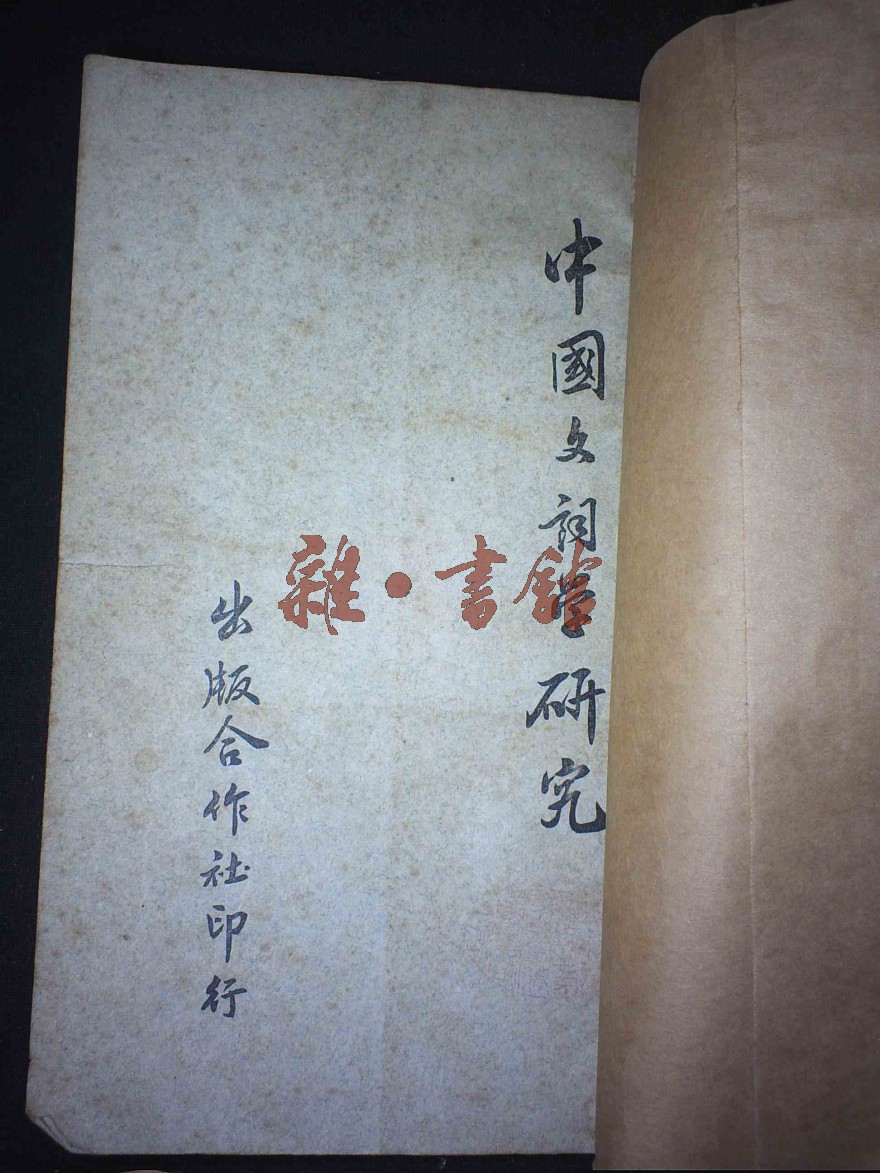 中國文詞學研究
出版合作社印行
雜·書館